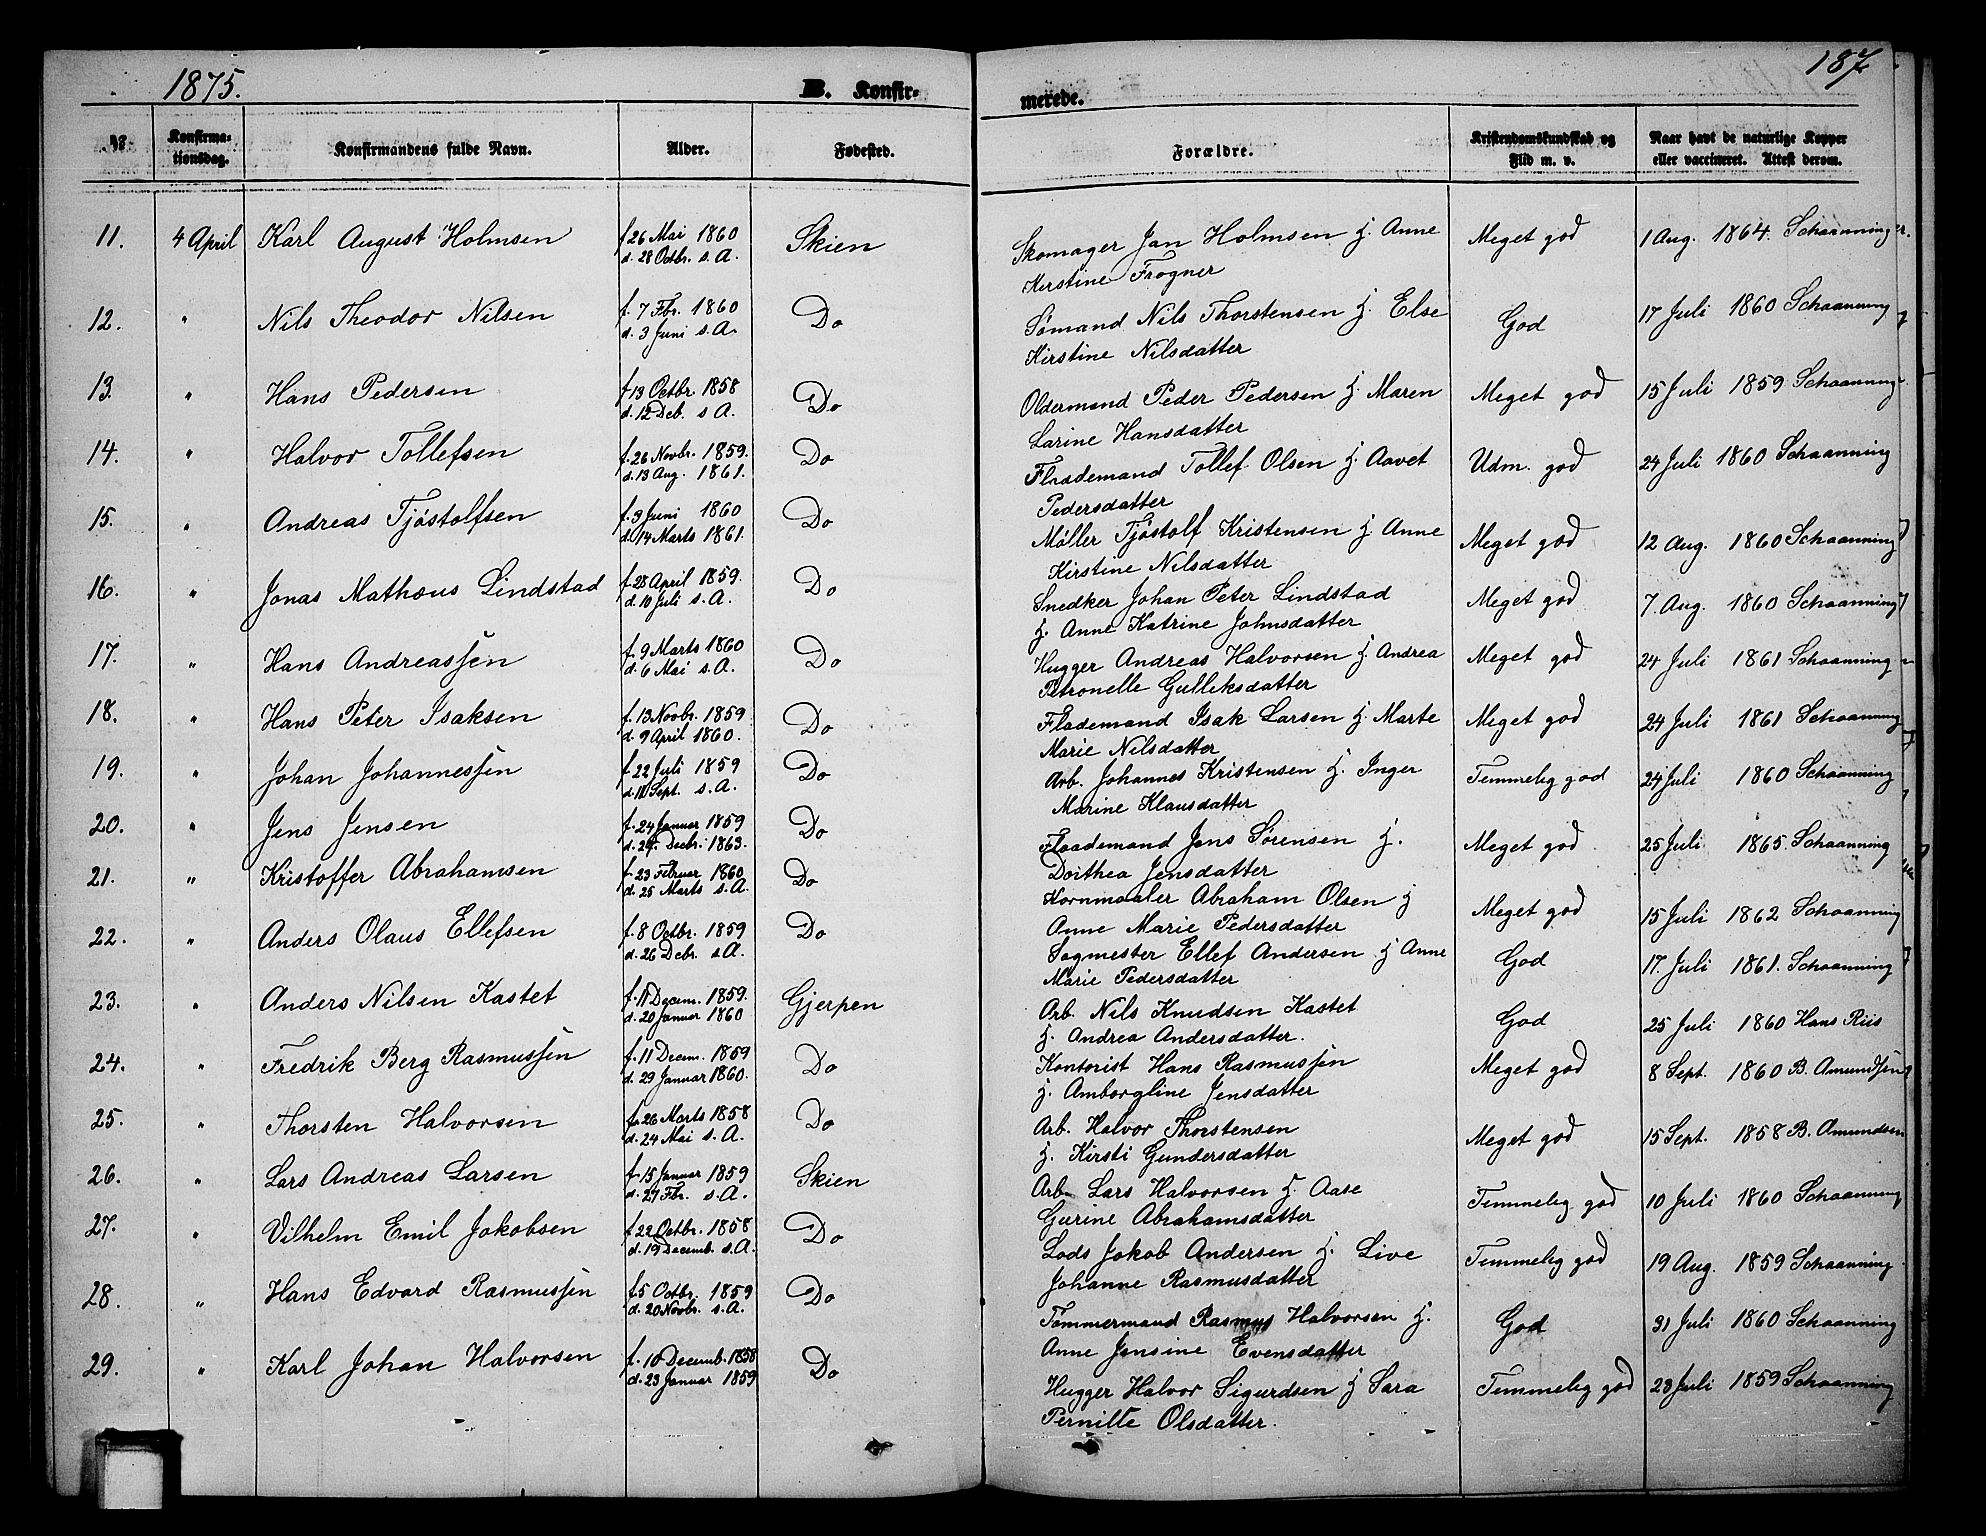 1875.
B. Konfir-
merede.
187
№
Konfirma-
tionsdag.
Konfirmandens fulde Navn.
Alder.
Fødested.
Forældre.
Kristendomskundskab og
Flid m. v.
Naar havt de naturlige Kopper
eller vaccineret. Attest derom.
11. 4 April Karl August Holmsen f. 26 Mai 1860 Skien Skomager Jan Holmsen H. Anne Meget god 1 Aug. 1864. Schaanning
d. 28 Octbr. s. A. Kerstine Frogner
12. " Nils Theodor Nilsen f. 7 Fbr. 1860 Do Sømand Nils Thorstensen H. Else God 17 Juli 1860 Schaanning
d. 3 Juni s. A. Kirstine Nilsdatter
13. " Hans Pedersen f. 13 Octbr. 1858 Do Oldermand Peder Pedersen H. Maren Meget god 15 Juli 1859 Schaanning
d. 12 Deb. s A. Larine Hansdatter
14. " Halvor Tollefsen f. 26 Novbr. 1859. Do Flaademand Tollef Olsen H. Aavet Udm. god 24 Juli 1860 Schaanning
d. 13 Aug. 1861. Pedersdatter
15. " Andreas Tjøstolfsen f. 9 Juni 1860 Do Møller Tjøstolf Kristensen H. Anne Meget god 12 Aug. 1860 Schaanning
d. 14 Marts 1861. Kirstine Nilsdatter
16. " Jonas Mathæus Lindstad f. 28 April 1859. Do Snedker Johan Peter Lindstad Meget god 7. Aug. 1860 Schaanning
d. 10 Juli s. A. H. Anne Katrine Johnsdatter
17. " Hans Andreassen f. 9 Marts 1860 Do Hugger Andreas Halvorsen H. Andrea Meget god 24 Juli 1861 Schaanning
d. 6 Mai s. A. Petronelle Gulleksdatter
18. " Hans Peter Isaksen f. 13 Novbr. 1859 Do Flademand Isak Larsen H. Marte Meget god 24 Juli 1861 Schaanning
d. 9 April 1860. Marie Nilsdatter
19. " Johan Johannessen f. 22 Juli 1859 Do Arb. Johannes Kristensen H. Inger Temmelig god 24 Juli 1860 Schaanning
d. 18 Sept. s. A. Marine Klausdatter
20. " Jens Jensen f. 24 Januar 1859 Do Flaademand Jens Sørensen H. Meget god 25 Juli 1865. Schaanning
d. 24. Decbr. 1863. Dorthea Jensdatter
21. " Kristoffer Abrahamsen f. 23 Februar 1860 Do Kornmaaler Abraham Olsen H Meget god 15 Juli 1862 Schaanning
d. 25 Marts s. A. Anne Marie Pedersdatter
22. " Anders Olaus Ellefsen f. 8 Octbr. 1859 Do Sagmester Ellef Andersen H Anne God 17. Juli 1861. Schaanning
d. 26 Debr. s A. Marie Pedersdatter
23. " Anders Nilsen Kastet f. 11 Decem. 1859. Gjerpen Arb. Nils Knudsen Kastet God 25 Juli 1860 Hans Riis
d. 20 Januar 1860 H. Andrea Andersdatter.
24. " Fredrik Berg Rasmussen f. 11 Decem. 1859 Do Kontorist Hans Rasmussen Meget god 8 Sept. 1860 B. Amundsen
d. 29 Januar 1860. H. Amborgline Jensdatter
25. " Thorsten Halvorsen f. 26 Marts 1858 Do Arb. Halvor Thorstensen Meget god 15 Sept. 1858 B. Amundsen
d. 24 Mai s. A. H. Kirsti Gundersdatter
26. " Lars Andreas Larsen f. 15 Januar 1859 Skien Arb. Lars Halvorsen H. Aase Temmelig god 10 Juli 1860 Schaanning
d. 27 Fbr. s. A. Gurine Abrahamsdatter
27. " Vilhelm Emil Jokobsen f. 22 Octbr. 1858 Do Lods Jokob Andersen H. Live Temmelig god 19 Aug. 1859 Schaanning
d. 19 Decemb. s. A. Johanne Rasmusdatter
28. " Hans Edvard Rasmussen f. 5 Octbr. 1859 Do Tømmermand Rasmus Halvorsen H. God 31 Juli 1860 Schaanning
d. 20 Novbr. s. A. Anne Jensine Evensdatter
29. " Karl Johan Halvorsen f. 10 Decemb. 1858 Do Hugger Halvor Sigurdsen H Sara Temmelig god 28 Juli 1859 Schaanning
d. 23 Januar 1859 Pernille Olsdatter.